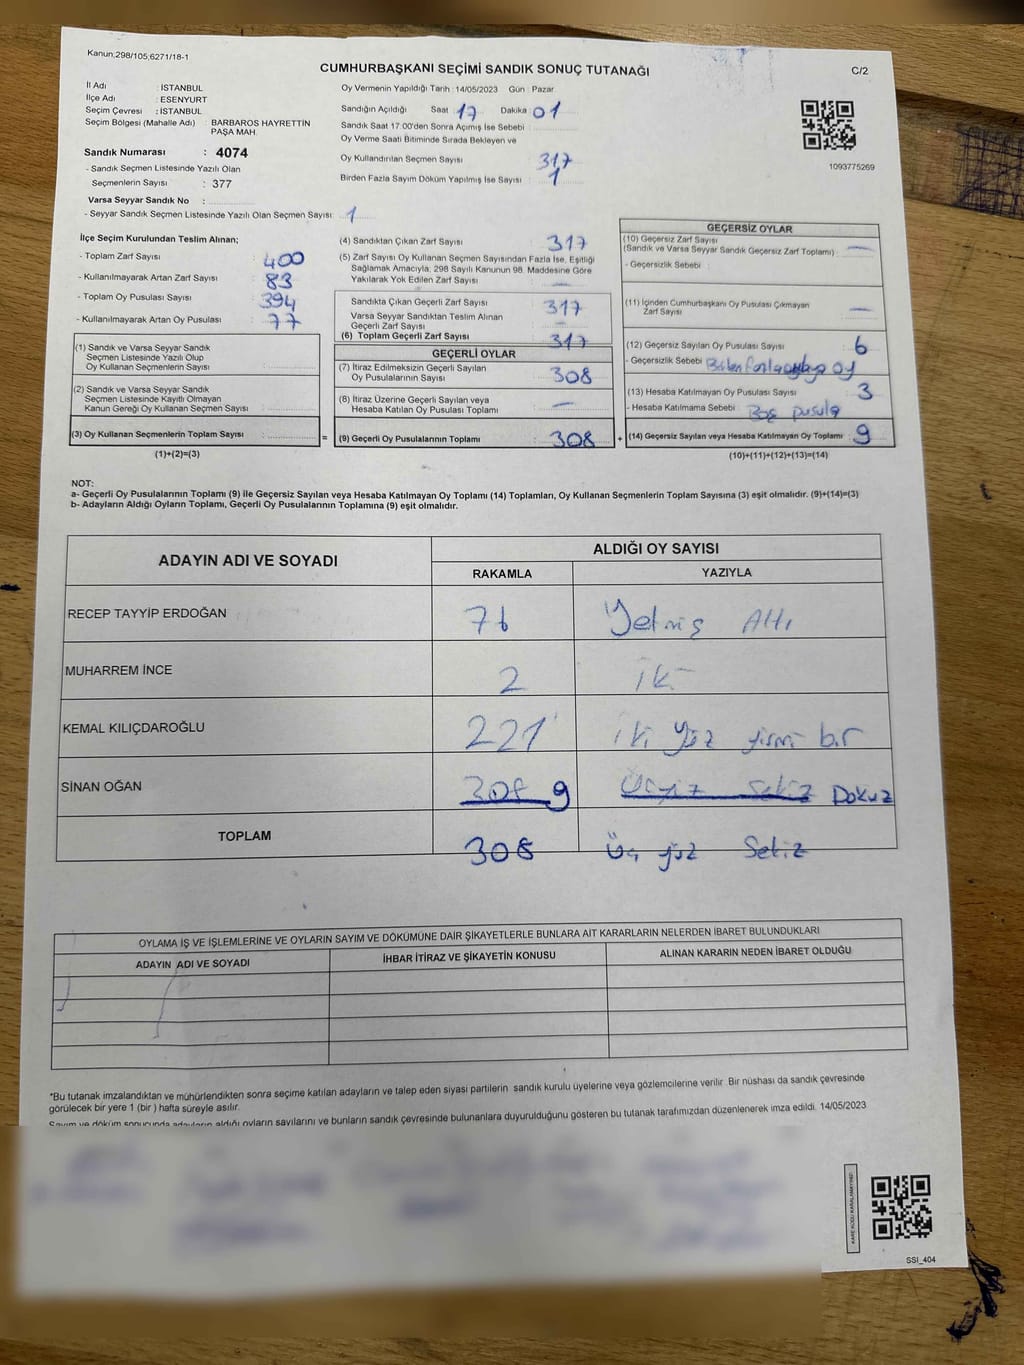 Kanun:298/105;6271/18-1
CUMHURBAŞKANI SEÇİMİ SANDIK SONUÇ TUTANAĞI
C/2
İl Adı : İSTANBUL
İlçe Adı : ESENYURT
Seçim Çevresi : İSTANBUL
Seçim Bölgesi (Mahalle Adı) : BARBAROS HAYRETTİN
PAŞA MAH.
Sandık Numarası : 4074
- Sandık Seçmen Listesinde Yazılı Olan
Seçmenlerin Sayısı : 377
Varsa Seyyar Sandık No :
- Seyyar Sandık Seçmen Listesinde Yazılı Olan Seçmen Sayısı: 1
Oy Vermenin Yapıldığı Tarih : 14/05/2023 Gün : Pazar
Sandığın Açıldığı Saat : 17 Dakika : 01
Sandık Saat 17:00'den Sonra Açımış İse Sebebi :
Oy Verme Saati Bitiminde Sırada Bekleyen ve
Oy Kullandırılan Seçmen Sayısı : 317
Birden Fazla Sayım Döküm Yapılmış İse Sayısı : 1
1093775269
İlçe Seçim Kurulundan Teslim Alınan;
- Toplam Zarf Sayısı : 400
- Kullanılmayarak Artan Zarf Sayısı : 83
- Toplam Oy Pusulası Sayısı : 394
- Kullanılmayarak Artan Oy Pusulası : 77
(1) Sandık ve Varsa Seyyar Sandık
Seçmen Listesinde Yazılı Olup
Oy Kullanan Seçmenlerin Sayısı :
(2) Sandık ve Varsa Seyyar Sandık
Seçmen Listesinde Kayıtlı Olmayan
Kanun Gereği Oy Kullanan Seçmen Sayısı :
(3) Oy Kullanan Seçmenlerin Toplam Sayısı :
(1)+(2)=(3)
=
(4) Sandıktan Çıkan Zarf Sayısı : 317
(5) Zarf Sayısı Oy Kullanan Seçmen Sayısından Fazla İse, Eşitliği
Sağlamak Amacıyla, 298 Sayılı Kanunun 98. Maddesine Göre
Yakılarak Yok Edilen Zarf Sayısı : —
Sandıkta Çıkan Geçerli Zarf Sayısı : 317
Varsa Seyyar Sandıktan Teslim Alınan
Geçerli Zarf Sayısı : —
(6) Toplam Geçerli Zarf Sayısı : 317
GEÇERLİ OYLAR
(7) İtiraz Edilmeksizin Geçerli Sayılan
Oy Pusulalarının Sayısı : 308
(8) İtiraz Üzerine Geçerli Sayılan veya
Hesaba Katılan Oy Pusulası Toplamı : —
(9) Geçerli Oy Pusulalarının Toplamı : 308
+
GEÇERSİZ OYLAR
(10) Geçersiz Zarf Sayısı
(Sandık ve Varsa Seyyar Sandık Geçersiz Zarf Toplamı) : —
- Geçersizlik Sebebi :
(11) İçinden Cumhurbaşkanı Oy Pusulası Çıkmayan
Zarf Sayısı : —
(12) Geçersiz Sayılan Oy Pusulası Sayısı : 6
- Geçersizlik Sebebi : Birden fazla oy
(13) Hesaba Katılmayan Oy Pusulası Sayısı : 3
- Hesaba Katılmama Sebebi : Boş pusula
(14) Geçersiz Sayılan veya Hesaba Katılmayan Oy Toplamı : 9
(10)+(11)+(12)+(13)=(14)
NOT:
a- Geçerli Oy Pusulalarının Toplamı (9) ile Geçersiz Sayılan veya Hesaba Katılmayan Oy Toplamı (14) Toplamları, Oy Kullanan Seçmenlerin Toplam Sayısına (3) eşit olmalıdır. (9)+(14)=(3)
b- Adayların Aldığı Oyların Toplamı, Geçerli Oy Pusulalarının Toplamına (9) eşit olmalıdır.
ADAYIN ADI VE SOYADI
ALDIĞI OY SAYISI
RAKAMLA YAZIYLA
RECEP TAYYİP ERDOĞAN 76 Yetmiş Altı
MUHARREM İNCE 2 iki
KEMAL KILIÇDAROĞLU 221 iki yüz yirmi bir
SİNAN OĞAN 308 9 Üçyüz sekiz Dokuz
TOPLAM 308 Üç yüz Sekiz
OYLAMA İŞ VE İŞLEMLERİNE VE OYLARIN SAYIM VE DÖKÜMÜNE DAİR ŞİKAYETLERLE BUNLARA AİT KARARLARIN NELERDEN İBARET BULUNDUKLARI
ADAYIN ADI VE SOYADI İHBAR İTİRAZ VE ŞİKAYETİN KONUSU ALINAN KARARIN NEDEN İBARET OLDUĞU
*Bu tutanak imzalandıktan ve mühürlendikten sonra seçime katılan adayların ve talep eden siyasi partilerin sandık kurulu üyelerine veya gözlemcilerine verilir. Bir nüshası da sandık çevresinde
görülecek bir yere 1 (bir) hafta süreyle asılır.
Sayım ve döküm sonucunda adayların aldığı oyların sayılarını ve bunların sandık çevresinde bulunanlara duyurulduğunu gösteren bu tutanak tarafımızdan düzenlenerek imza edildi. 14/05/2023
KARE KODU KARALAMAYINIZ!
SSI_404